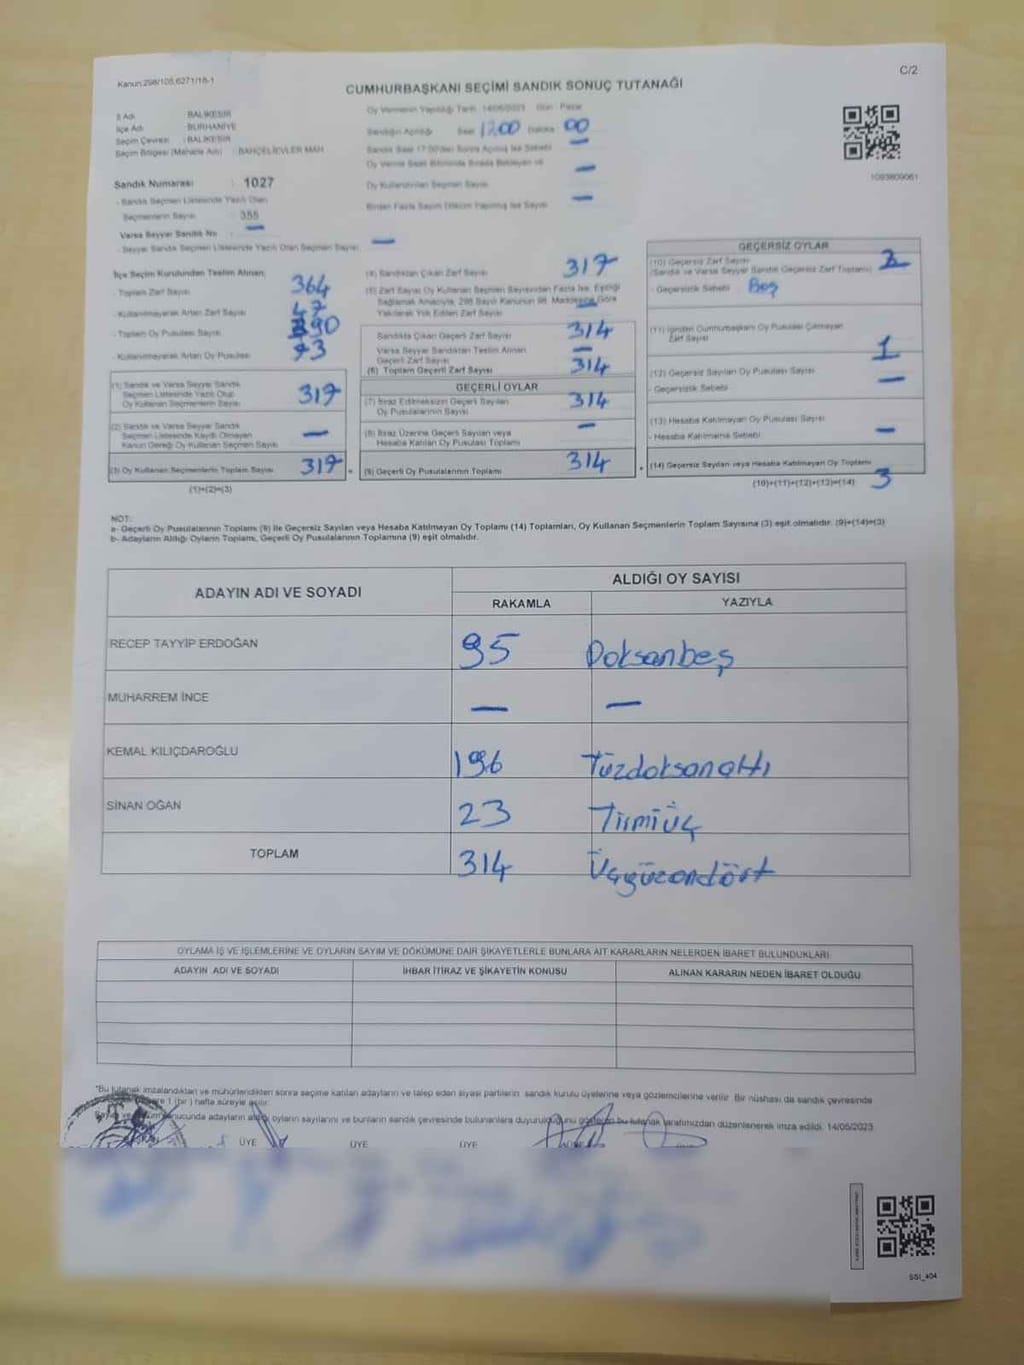 Kanun:298/105,6271/18-1
C/2
CUMHURBAŞKANI SEÇİMİ SANDIK SONUÇ TUTANAĞI
İl Adı BALIKESİR
İlçe Adı BURHANİYE
Seçim Çevresi : BALIKESİR
Seçim Bölgesi (Mahalle Adı) : BAHÇELİEVLER MAH
Sandık Numarası : 1027
- Sandık Seçmen Listesinde Yazılı Olan
Seçmenlerin Sayısı : 355
Varsa Seyyar Sandık No —
- Seyyar Sandık Seçmen Listesinde Yazılı Olan Seçmen Sayısı —
Oy Vermenin Yapıldığı Tarih 14/05/2023 Gün Pazar
Sandığın Açıldığı Saat 17.00 Dakika 00
Sandık Saat 17:00'den Sonra Açılmış İse Sebebi —
Oy Verme Saati Bitiminde Sırada Bekleyen ve
Oy Kullandırılan Seçmen Sayısı —
Birden Fazla Sayım Döküm Yapılmış İse Sayısı —
1093809061
İlçe Seçim Kurulundan Teslim Alınan;
- Toplam Zarf Sayısı 364
- Kullanılmayarak Artan Zarf Sayısı 47
- Toplam Oy Pusulası Sayısı 390
- Kullanılmayarak Artan Oy Pusulası 73
(1) Sandık ve Varsa Seyyar Sandık
Seçmen Listesinde Yazılı Olup
Oy Kullanan Seçmenlerin Sayısı 317
(2) Sandık ve Varsa Seyyar Sandık
Seçmen Listesinde Kaydı Olmayan
Kanun Gereği Oy Kullanan Seçmen Sayısı —
(3) Oy Kullanan Seçmenlerin Toplam Sayısı 317 =
(1)+(2)=(3)
(4) Sandıktan Çıkan Zarf Sayısı 317
(5) Zarf Sayısı Oy Kullanan Seçmen Sayısından Fazla İse, Eşitliği
Sağlamak Amacıyla, 298 Sayılı Kanunun 98. Maddesine Göre
Yakılarak Yok Edilen Zarf Sayısı —
Sandıkta Çıkan Geçerli Zarf Sayısı 314
Varsa Seyyar Sandıktan Teslim Alınan
Geçerli Zarf Sayısı —
(6) Toplam Geçerli Zarf Sayısı 314
GEÇERLİ OYLAR
(7) İtiraz Edilmeksizin Geçerli Sayılan
Oy Pusulalarının Sayısı 314
(8) İtiraz Üzerine Geçerli Sayılan veya
Hesaba Katılan Oy Pusulası Toplamı —
(9) Geçerli Oy Pusulalarının Toplamı 314 +
GEÇERSİZ OYLAR
(10) Geçersiz Zarf Sayısı
(Sandık ve Varsa Seyyar Sandık Geçersiz Zarf Toplamı) 2
- Geçersizlik Sebebi Boş
(11) İçinden Cumhurbaşkanı Oy Pusulası Çıkmayan
Zarf Sayısı 1
(12) Geçersiz Sayılan Oy Pusulası Sayısı —
- Geçersizlik Sebebi
(13) Hesaba Katılmayan Oy Pusulası Sayısı —
- Hesaba Katılmama Sebebi
(14) Geçersiz Sayılan veya Hesaba Katılmayan Oy Toplamı
(10)+(11)+(12)+(13)=(14) 3
NOT:
a- Geçerli Oy Pusulalarının Toplamı (9) ile Geçersiz Sayılan veya Hesaba Katılmayan Oy Toplamı (14) Toplamları, Oy Kullanan Seçmenlerin Toplam Sayısına (3) eşit olmalıdır. (9)+(14)=(3)
b- Adayların Aldığı Oyların Toplamı, Geçerli Oy Pusulalarının Toplamına (9) eşit olmalıdır.
ADAYIN ADI VE SOYADI
ALDIĞI OY SAYISI
RAKAMLA YAZIYLA
RECEP TAYYİP ERDOĞAN 95 Doksanbeş
MUHARREM İNCE — —
KEMAL KILIÇDAROĞLU 196 Yüzdoksanaltı
SİNAN OĞAN 23 Yirmiüç
TOPLAM 314 Üçyüzondört
OYLAMA İŞ VE İŞLEMLERİNE VE OYLARIN SAYIM VE DÖKÜMÜNE DAİR ŞİKAYETLERLE BUNLARA AİT KARARLARIN NELERDEN İBARET BULUNDUKLARI
ADAYIN ADI VE SOYADI İHBAR İTİRAZ VE ŞİKAYETİN KONUSU ALINAN KARARIN NEDEN İBARET OLDUĞU
*Bu tutanak imzalandıktan ve mühürlendikten sonra seçime katılan adayların ve talep eden siyasi partilerin sandık kurulu üyelerine veya gözlemcilerine verilir. Bir nüshası da sandık çevresinde
1 (bir) hafta süreyle asılır.
sonucunda adayların aldığı oyların sayılarını ve bunların sandık çevresinde bulunanlara duyurulduğunu gösteren bu tutanak tarafımızdan düzenlenerek imza edildi. 14/05/2023
ÜYE ÜYE ÜYE
SSI_404